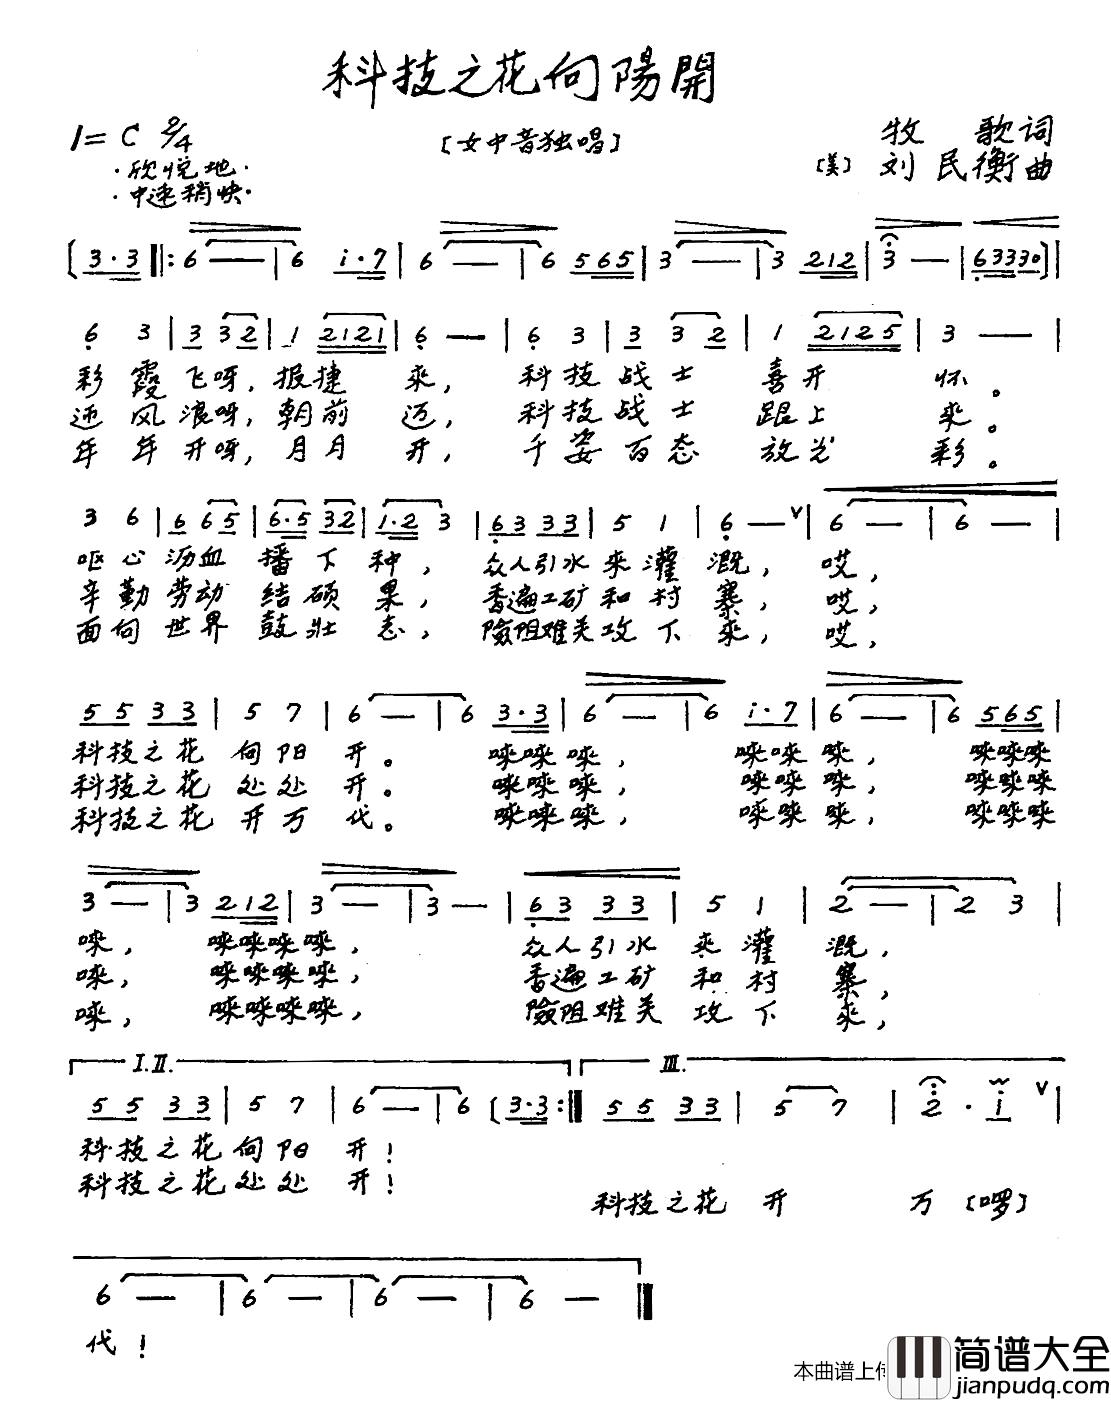 科技之花向陽開
1=C 2/4
〔女中音独唱〕
牧 歌词
·欣悦地·
〔美〕刘民衡曲
·中速稍快·
〔3·3‖:6 —|6 i·7|6 —|6 565|3 —|3 212|3 —|63330〕|
6 3|3 32|1 2121|6 —|6 3|3 3 2|1 2125|3 —|
彩霞飞呀,报捷 来, 科技战士 喜开 怀。
迎风浪呀,朝前 迈, 科技战士 跟上 来。
年年开呀,月月 开, 千姿百态 放光 彩。
3 6|6 65|6·5 32|1·2 3|63 33|5 1|6 — V|6 —|6 —|
呕心沥血 播下种, 众人引水来灌溉, 哎,
辛勤劳动 结硕果, 香遍工矿和村寨, 哎,
面向世界 鼓壮志, 險阻难关攻下来, 哎,
55 33|5 7|6 —|6 3·3|6 —|6 i·7|6 —|6 565|
科技之花 向阳 开。 唻唻唻, 唻唻唻, 唻唻唻
科技之花 处处 开。 唻唻唻, 唻唻唻, 唻唻唻
科技之花 开万 代。 唻唻唻, 唻唻唻, 唻唻唻
3 —|3 212|3 —|3 —|63 33|5 1|2 —|2 3|
唻, 唻唻唻唻, 众人引水 来灌溉,
唻, 唻唻唻唻, 香遍工矿 和村寨,
唻, 唻唻唻唻, 險阻难关 攻下来,
I.II. III.
55 33|5 7|6 —|6 〔3·3:‖55 33|5 7|2· i V|
科技之花 向阳 开!
科技之花 处处 开!
科技之花 开 万〔啰〕
6 —|6 —|6 —|6 —‖
代!
本曲谱上传
简谱大全
jianpudq.com